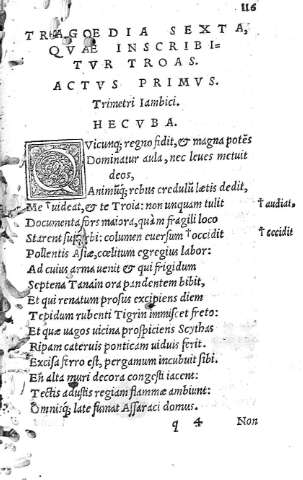 116
TRAGOEDIA SEXTA,
QVAE INSCRIBI=
TVR TROAS.
ACTVS PRIMVS.
Trimetri Iambici.
HECVBA.
QVicunq; regno fidit, & magna potēs
Dominatur aula, nec leues metuit
deos,
Animūq; rebus credulū lætis dedit,
Me †uideat, & te Troia: non unquam tulit †audiat,
Documenta fors maiora, quàm fragili loco
Starent superbi: columen euersum †occidit †cecidit
Pollentis Asiæ, cœlitum egregius labor:
Ad cuius arma uenit & qui frigidum
Septena Tanain ora pandentem bibit,
Et qui renatum prosus excipiens diem
Tepidum rubenti Tigrin immiscet freto:
Et quæ uagos uicina prospiciens Scythas
Ripam cateruis ponticam uiduis ferit.
Excisa ferro est, pergamum incubuit sibi.
En alta muri decora congesti iacent:
Tectis adustis regiam flammæ ambiunt:
Omnisq; late fumat Assaraci domus.
q 4 Non